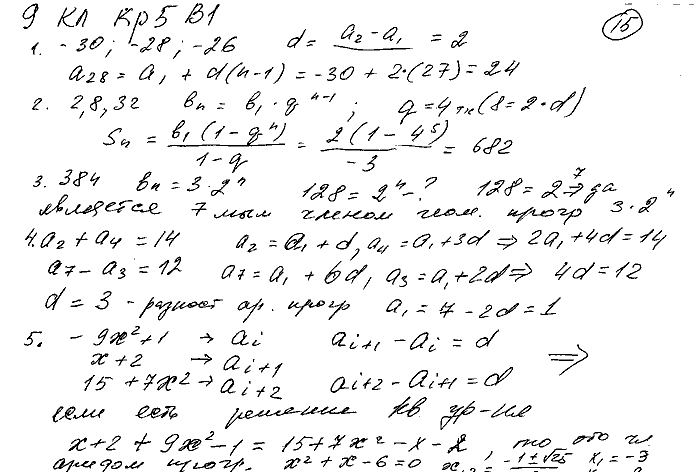 9 кл Кр5 В1
15
1. -30; -28; -26 d = a₂-a₁ = 2
a₂₈ = a₁ + d(n-1) = -30 + 2·(27) = 24
2. 2,8,32 bₙ = b₁·qⁿ⁻¹; q=4 тк (8=2·d)
Sₙ = b₁(1-qⁿ)/1-q = 2(1-4⁵)/-3 = 682
3. 384 bₙ = 3·2ⁿ 128 = 2ⁿ-? 128 = 2⁷ ⇒ да
является 7мым членом геом. прогр 3·2ⁿ
4. a₂+a₄ = 14 a₂ = a₁+d, a₄ = a₁+3d ⇒ 2a₁+4d = 14
a₇-a₃ = 12 a₇ = a₁ + 6d, a₃ = a₁+2d ⇒ 4d = 12
d = 3 - разност ар. прогр a₁ = 7-2d = 1
5. -9x²+1 → aᵢ aᵢ₊₁ - aᵢ = d
x+2 → aᵢ₊₁ ⇒
15+7x² → aᵢ₊₂ aᵢ₊₂ - aᵢ₊₁ = d
если есть решение кв ур-ия
x+2+9x²-1 = 15+7x²-x-2, то это чл
арифм прогр. x²+x-6=0 -1±√25 x₁=-3